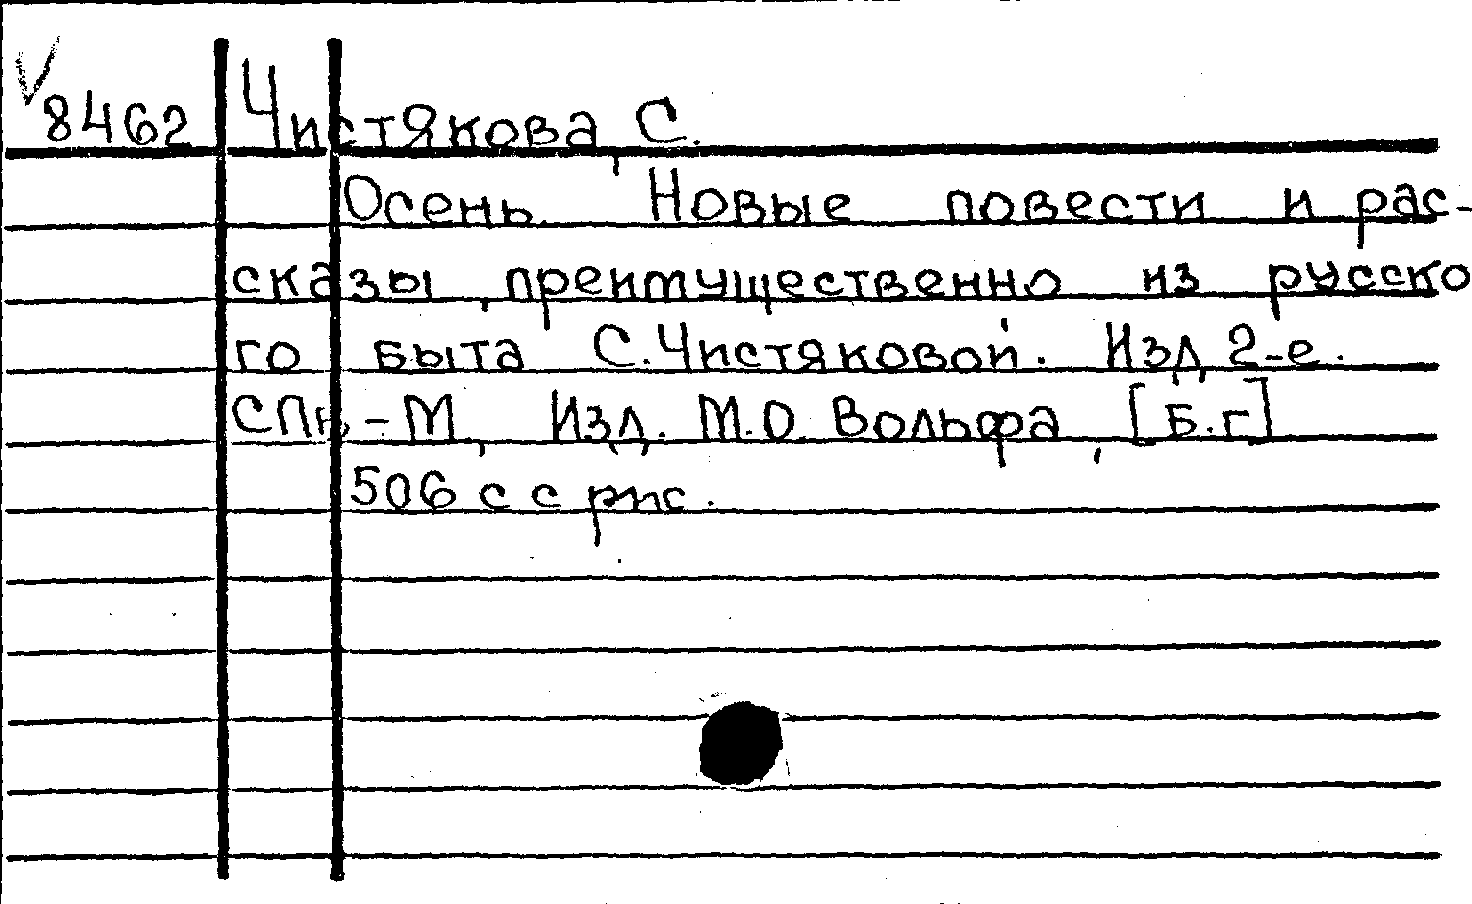 V
8462 Чистякова, С.
Осень. Новые повести и рас-
сказы, преимущественно из русско
го быта С. Чистяковой. Изд. 2-е.
СПб - М., Изд. М.О. Вольфа, [Б.г]
506 с с рис.